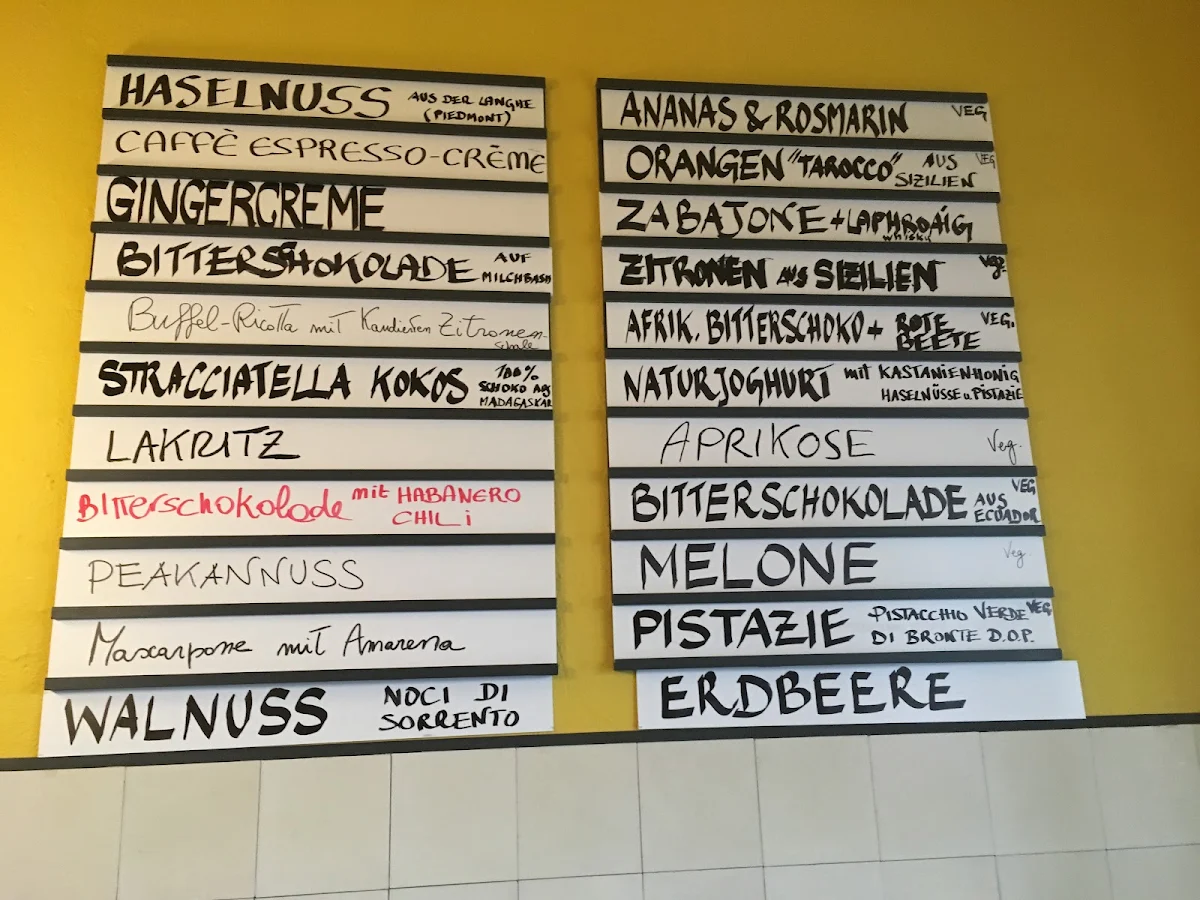 HASELNUSS AUS DER LANGHE
(PIEDMONT)
CAFFÈ ESPRESSO-CRÈME
GINGERCREME
BITTERSCHOKOLADE AUF
MILCHBASIS
Buffel-Ricotta mit Kandierten Zitronen-
schale
STRACCIATELLA KOKOS 100%
SCHOKO AUS
MADAGASKAR
LAKRITZ
Bitterschokolade mit HABANERO
CHILI
PEAKANNUSS
Mascarpone mit Amarena
WALNUSS NOCI DI
SORRENTO
ANANAS & ROSMARIN VEG
ORANGEN "TAROCCO" AUS VEG
SIZILIEN
ZABAJONE + LAPHROAIG
whisky
ZITRONEN AUS SIZILIEN Veg.
AFRIK. BITTERSCHOKO + ROTE VEG.
BEETE
NATURJOGHURT mit KASTANIENHONIG
HASELNÜSSE u. PISTAZIE
APRIKOSE Veg.
BITTERSCHOKOLADE VEG
AUS
ECUADOR
MELONE Veg.
PISTAZIE PISTACCHIO VERDE VEG
DI BRONTE D.O.P.
ERDBEERE